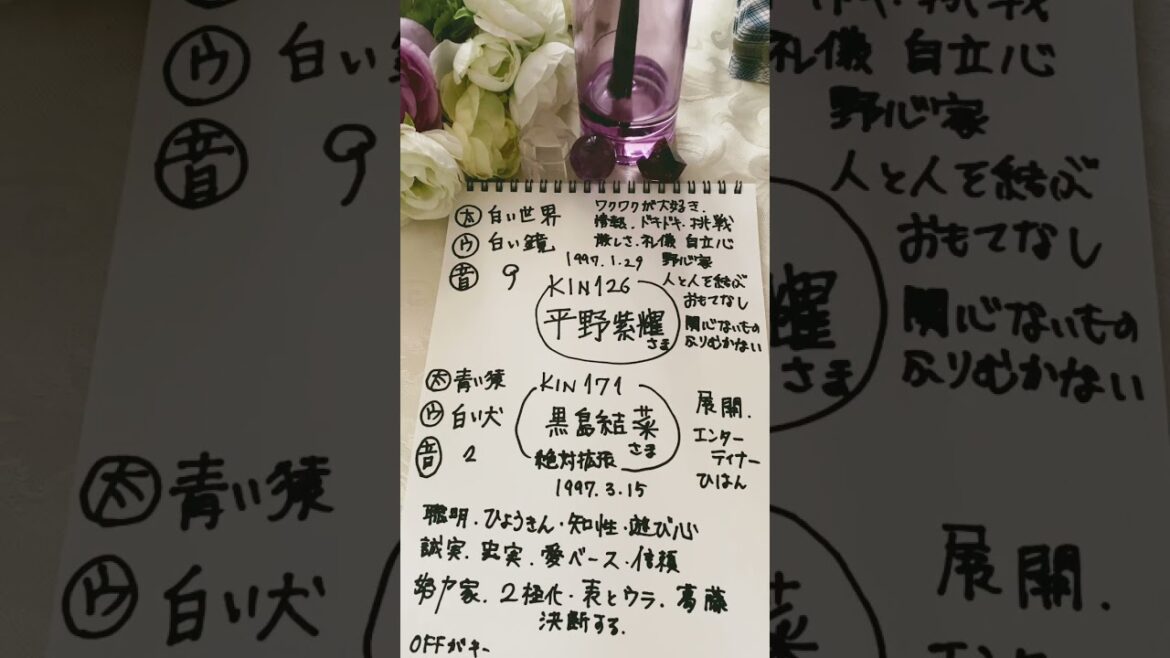 ㊍白い世界
ワクワクが大好き.
情報.ドキドキ・挑戦
ウ 白い鏡
厳しさ.礼儀 自立心
1997.1.29 野心家
音 9
KIN126
人と人を結ぶ
おもてなし
平野紫耀
さま
関心ないもの
ふりむかない
太 青い猿
KIN171
ウ 白い犬
黒島結菜
さま
展開.
エンター
テイナー
ひはん
音 2
絶対拡張
1997.3.15
聰明.ひょうきん・知性・遊び心
誠実.忠実.愛ベース・信頼
努力家.2極化・表とウラ.葛藤
決断する.
OFFがキー